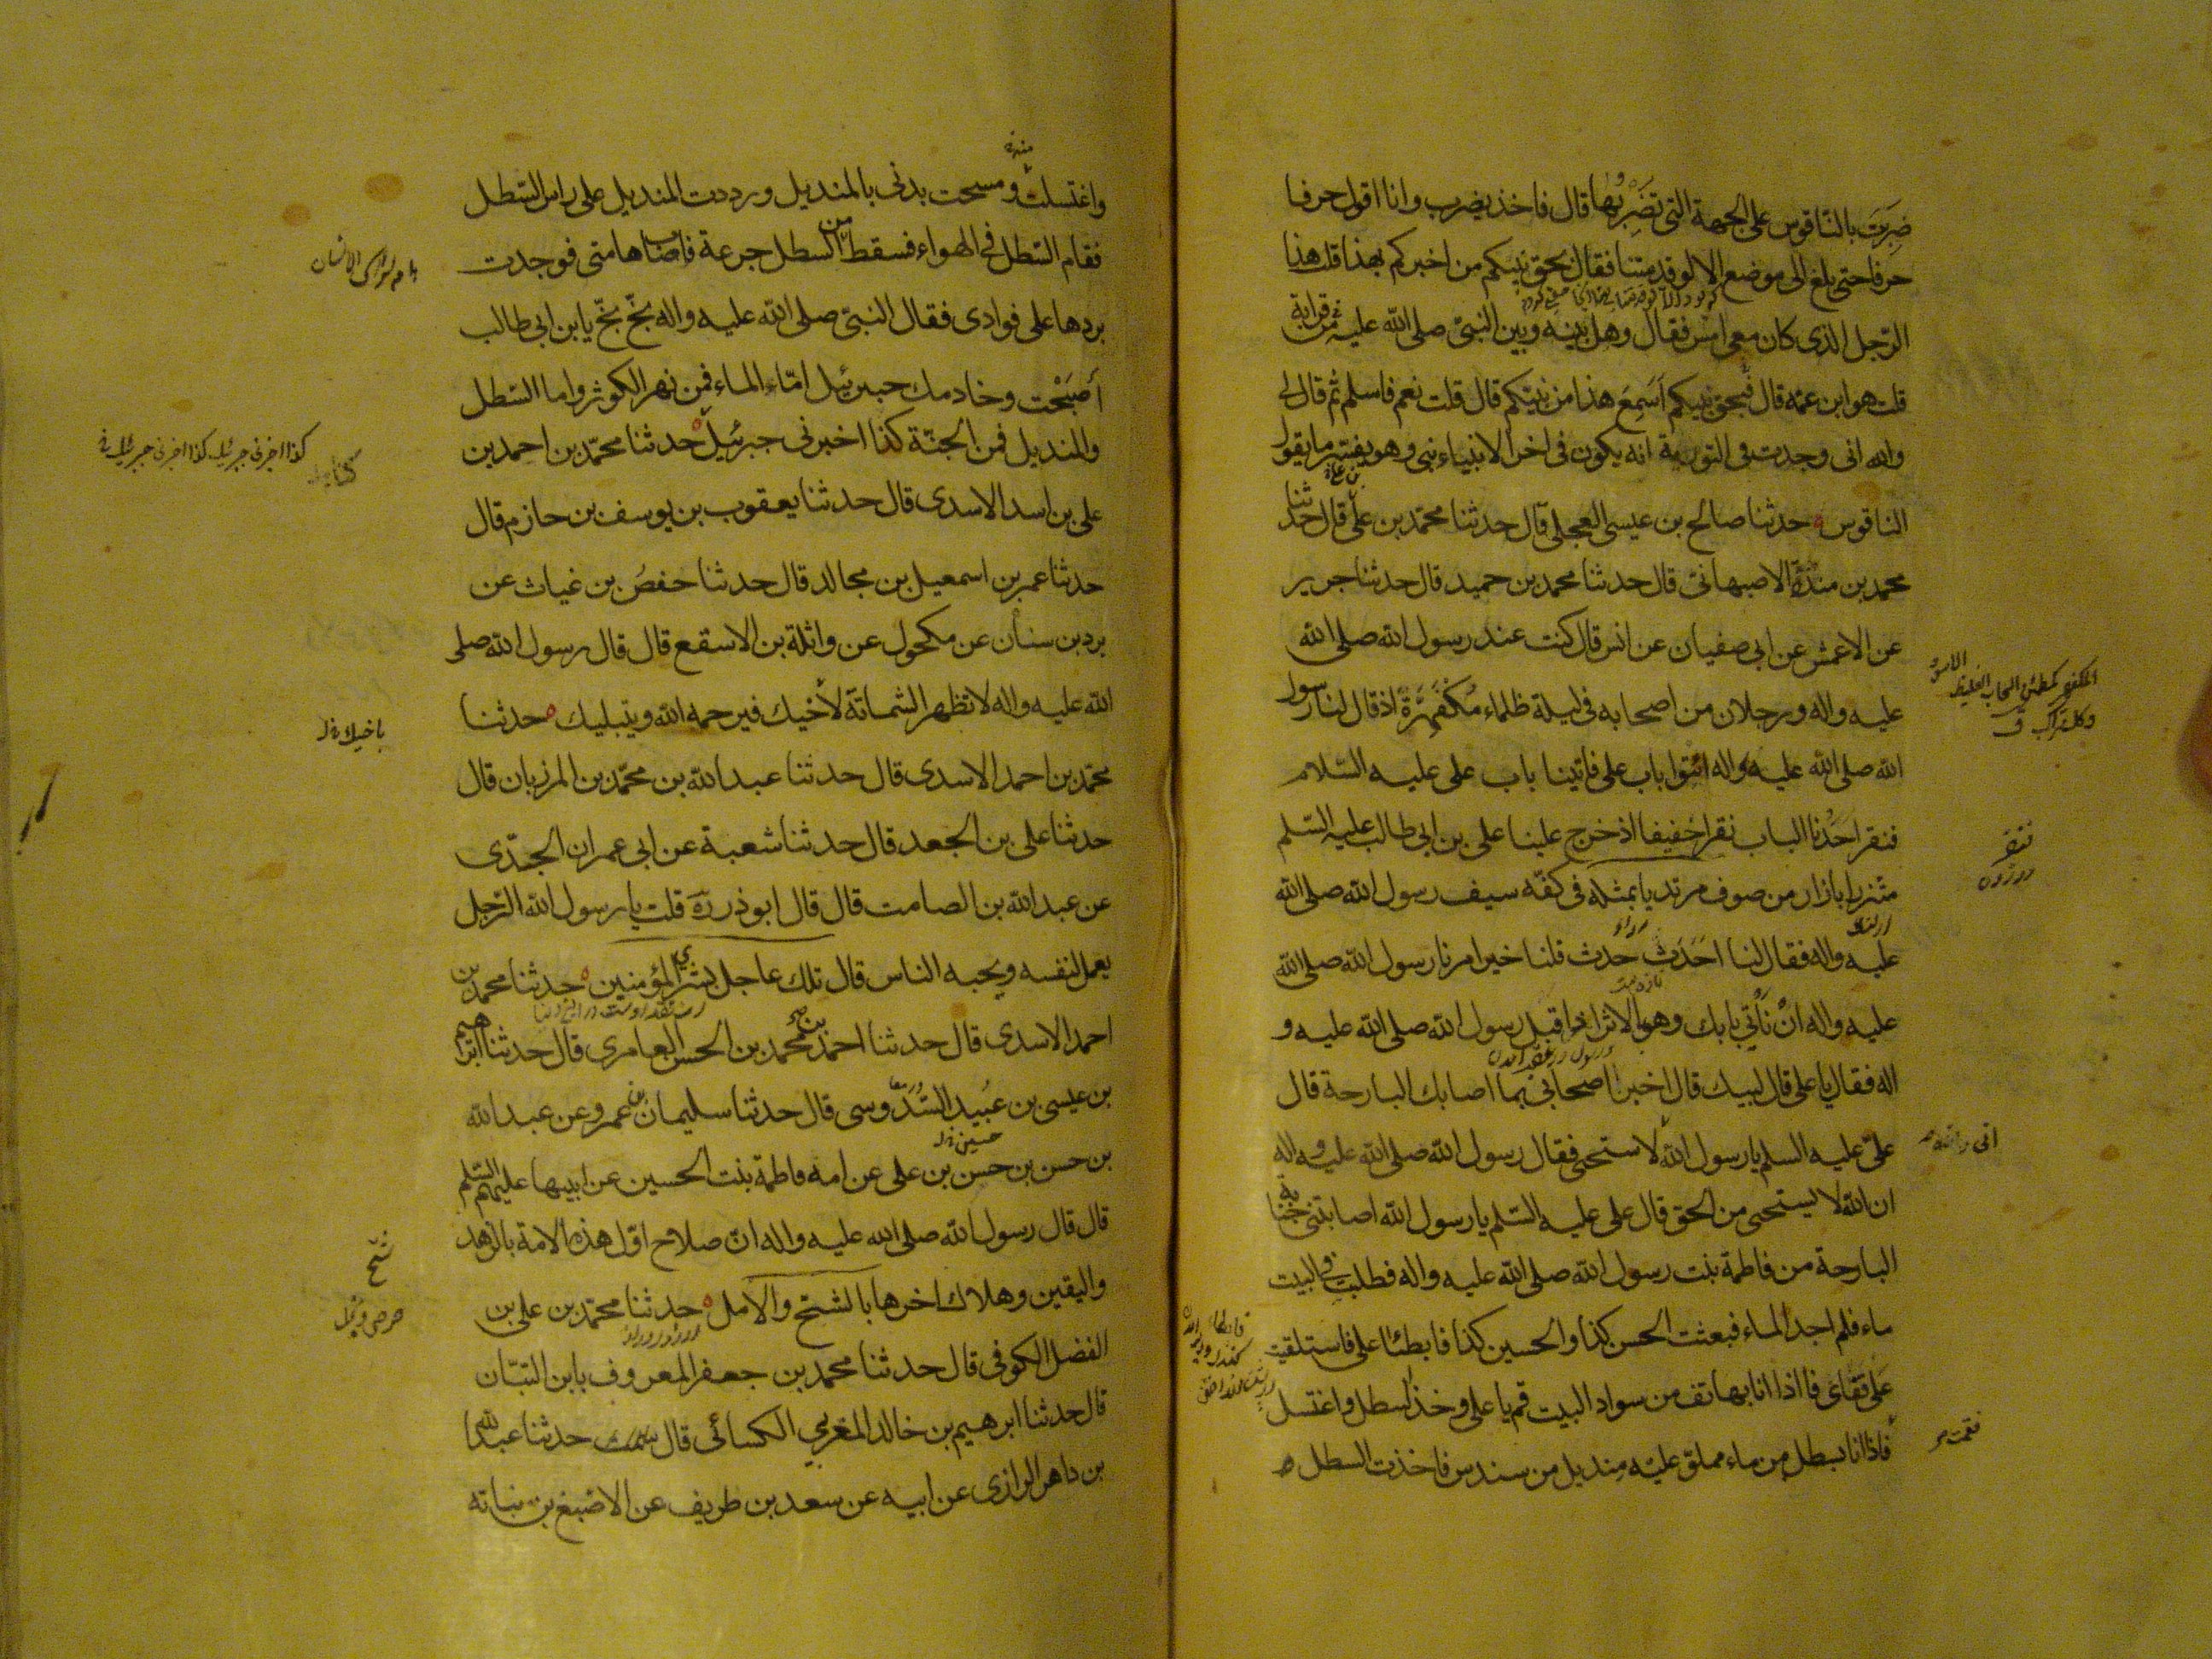 ضربت بالناقوس على الجهة التي تضربها قال فاخذ يضرب وانا اقول حرفا
حرفا حتى بلغ الى موضع الا لو قد متنا فقال بحق نبيكم من اخبركم بهذا قلت هذا
الرجل الذى كان معى امس فقال وهل بينه وبين النبى صلى الله عليه من قرابة
قلت هو ابن عمه قال فبحق نبيكم اسمع هذا من نبيكم قال قلت نعم فاسلم ثم قال لى
والله انى وجدت فى التورية انه يكون فى اخر الانبياء نبى وهو يفسر ما يقول
الناقوس حدثنا صالح بن عيسى العجلى قال حدثنا محمد بن على قال حدثنا
محمد بن مندة الاصبهانى قال حدثنا محمد بن حميد قال حدثنا جرير
عن الاعمش عن ابى صفيان عن انس قال كنت عند رسول الله صلى الله
عليه واله ورجلان من اصحابه فى ليلة ظلماء مكفهرة اذ قال لنا رسول
الله صلى الله عليه واله ائتوا باب على فاتينا باب على عليه السلام
فنقر احدنا الباب نقرا خفيفا اذ خرج علينا على بن ابى طالب عليه السلم
متزرا بازار من صوف مرتديا بمثله فى كفه سيف رسول الله صلى الله
عليه واله فقال لنا احدث حدث قلنا خير امرنا رسول الله صلى الله
عليه واله ان نأتي بابك وهو بالاثر اذ اقبل رسول الله صلى الله عليه و
اله فقال يا على قال لبيك قال اخبر اصحابي بما اصابك البارحة قال
على عليه السلم يا رسول الله لاستحيى فقال رسول الله صلى الله عليه واله
ان الله لا يستحيى من الحق قال على عليه السلم يا رسول الله اصابتنى جنابة
البارحة من فاطمة بنت رسول الله صلى الله عليه واله فطلبت فى البيت
ماء فلم اجد الماء فبعثت الحسن كذا والحسين كذا فابطئا على فاستلقيت
على قفاى فاذا انا بهاتف من سواد البيت قم يا على وخذ السطل واغتسل
فاذا انا بسطل من ماء مملوّ عليه منديل من سندس فاخذت السطل
نقر
واغتسلت ومسحت بدنى بالمنديل ورددت المنديل على راس السّطل
فقام السّطل فى الهواء فسقط من السطل جرعة فاصابت هامتى فوجدت
بردها على فوادى فقال النبىّ صلى الله عليه واله بخّ بخّ يا ابن ابى طالب
أصبحت وخادمك جبرئيل امّا الماء فمن نهر الكوثر واما السّطل
والمنديل فمن الجنّة كذا اخبرنى جبرئيل حدثنا محمّد بن احمد بن
على بن اسد الاسدى قال حدثنا يعقوب بن يوسف بن حازم قال
حدثنا عمر بن اسمعيل بن مجالد قال حدثنا حفص بن غياث عن
برد بن سنان عن مكحول عن واثلة بن الاسقع قال قال رسول الله صلى
الله عليه واله لا تظهر الشماتة لأخيك فيرحمه الله ويبتليك حدثنا
محمّد بن احمد الاسدى قال حدثنا عبد الله بن محمّد بن المرزبان قال
حدثنا على بن الجعد قال حدثنا شعبة عن ابى عمران الجندى
عن عبد الله بن الصامت قال قال ابو ذر ره قلت يا رسول الله الرّجل
يعمل لنفسه ويحبه الناس قال تلك عاجل بشرى المؤمنين حدثنا محمد بن
احمد الاسدى قال حدثنا احمد بن محمد بن الحسن العامرى قال حدثنا ابراهيم
بن عيسى بن عبيد السّدوسى قال حدثنا سليمان بن عمرو عن عبد الله
بن حسن بن حسن بن على عن امه فاطمة بنت الحسين عن ابيها عليهم السّلم
قال قال رسول الله صلى الله عليه واله ان صلاح اوّل هذه الامة بالزهد
واليقين وهلاك اخرها بالشحّ والامل حدثنا محمّد بن على بن
الفضل الكوفى قال حدثنا محمد بن جعفر المعروف بابن التبّان
قال حدثنا ابرهيم بن خالد المغربي الكسائى قال حدثنا عبد الله
بن داهر الرازى عن ابيه عن سعد بن طريف عن الاصبغ بن نباته
كذا اخبرنى جبرئيل كذا اخبرنى جبرئيل
شحّ